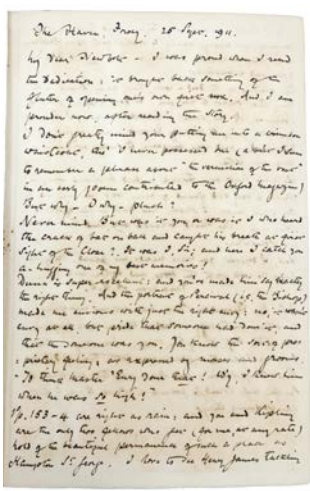 The Haven, Fowey. 25 Sept. 1911.
My dear Newbolt – I was proud when I read
the Dedication: it brought back something of the
flutter of opening one's own first book. And I am
prouder now, after reading the story.
I don't greatly mind your putting me into a crimson
waistcoat, tho' I never possessed but
to remember a phrase about "the of the one"
in an early poem contributed to the Oxford Magazine)
But why – O why – plush?
Never mind. But was it you or was it I who heard
the crack of bat on ball and caught his breath at first
sight of the Close? It was I, Sir; and here I catch you
one of my best memories!
is super-excellent: and you've made him say exactly
the right thing. And the portrait of Percival (i.e. the Bishop)
made me envious with just the right envy: no, it
envy at all, but pride that someone had done it, and
that the someone was you. You know the sort of
feeling, as expressed by nurses and grooms.
"To think Master Tony done that! Why, I knew him
when he was so high!"
Pp. 153-4 are right as rain; and you and Kipling
are the only two fellows who get (for me, at any rate)
hold of the beautiful permanence of such a place as
Hampton St. George. I have to see Henry James